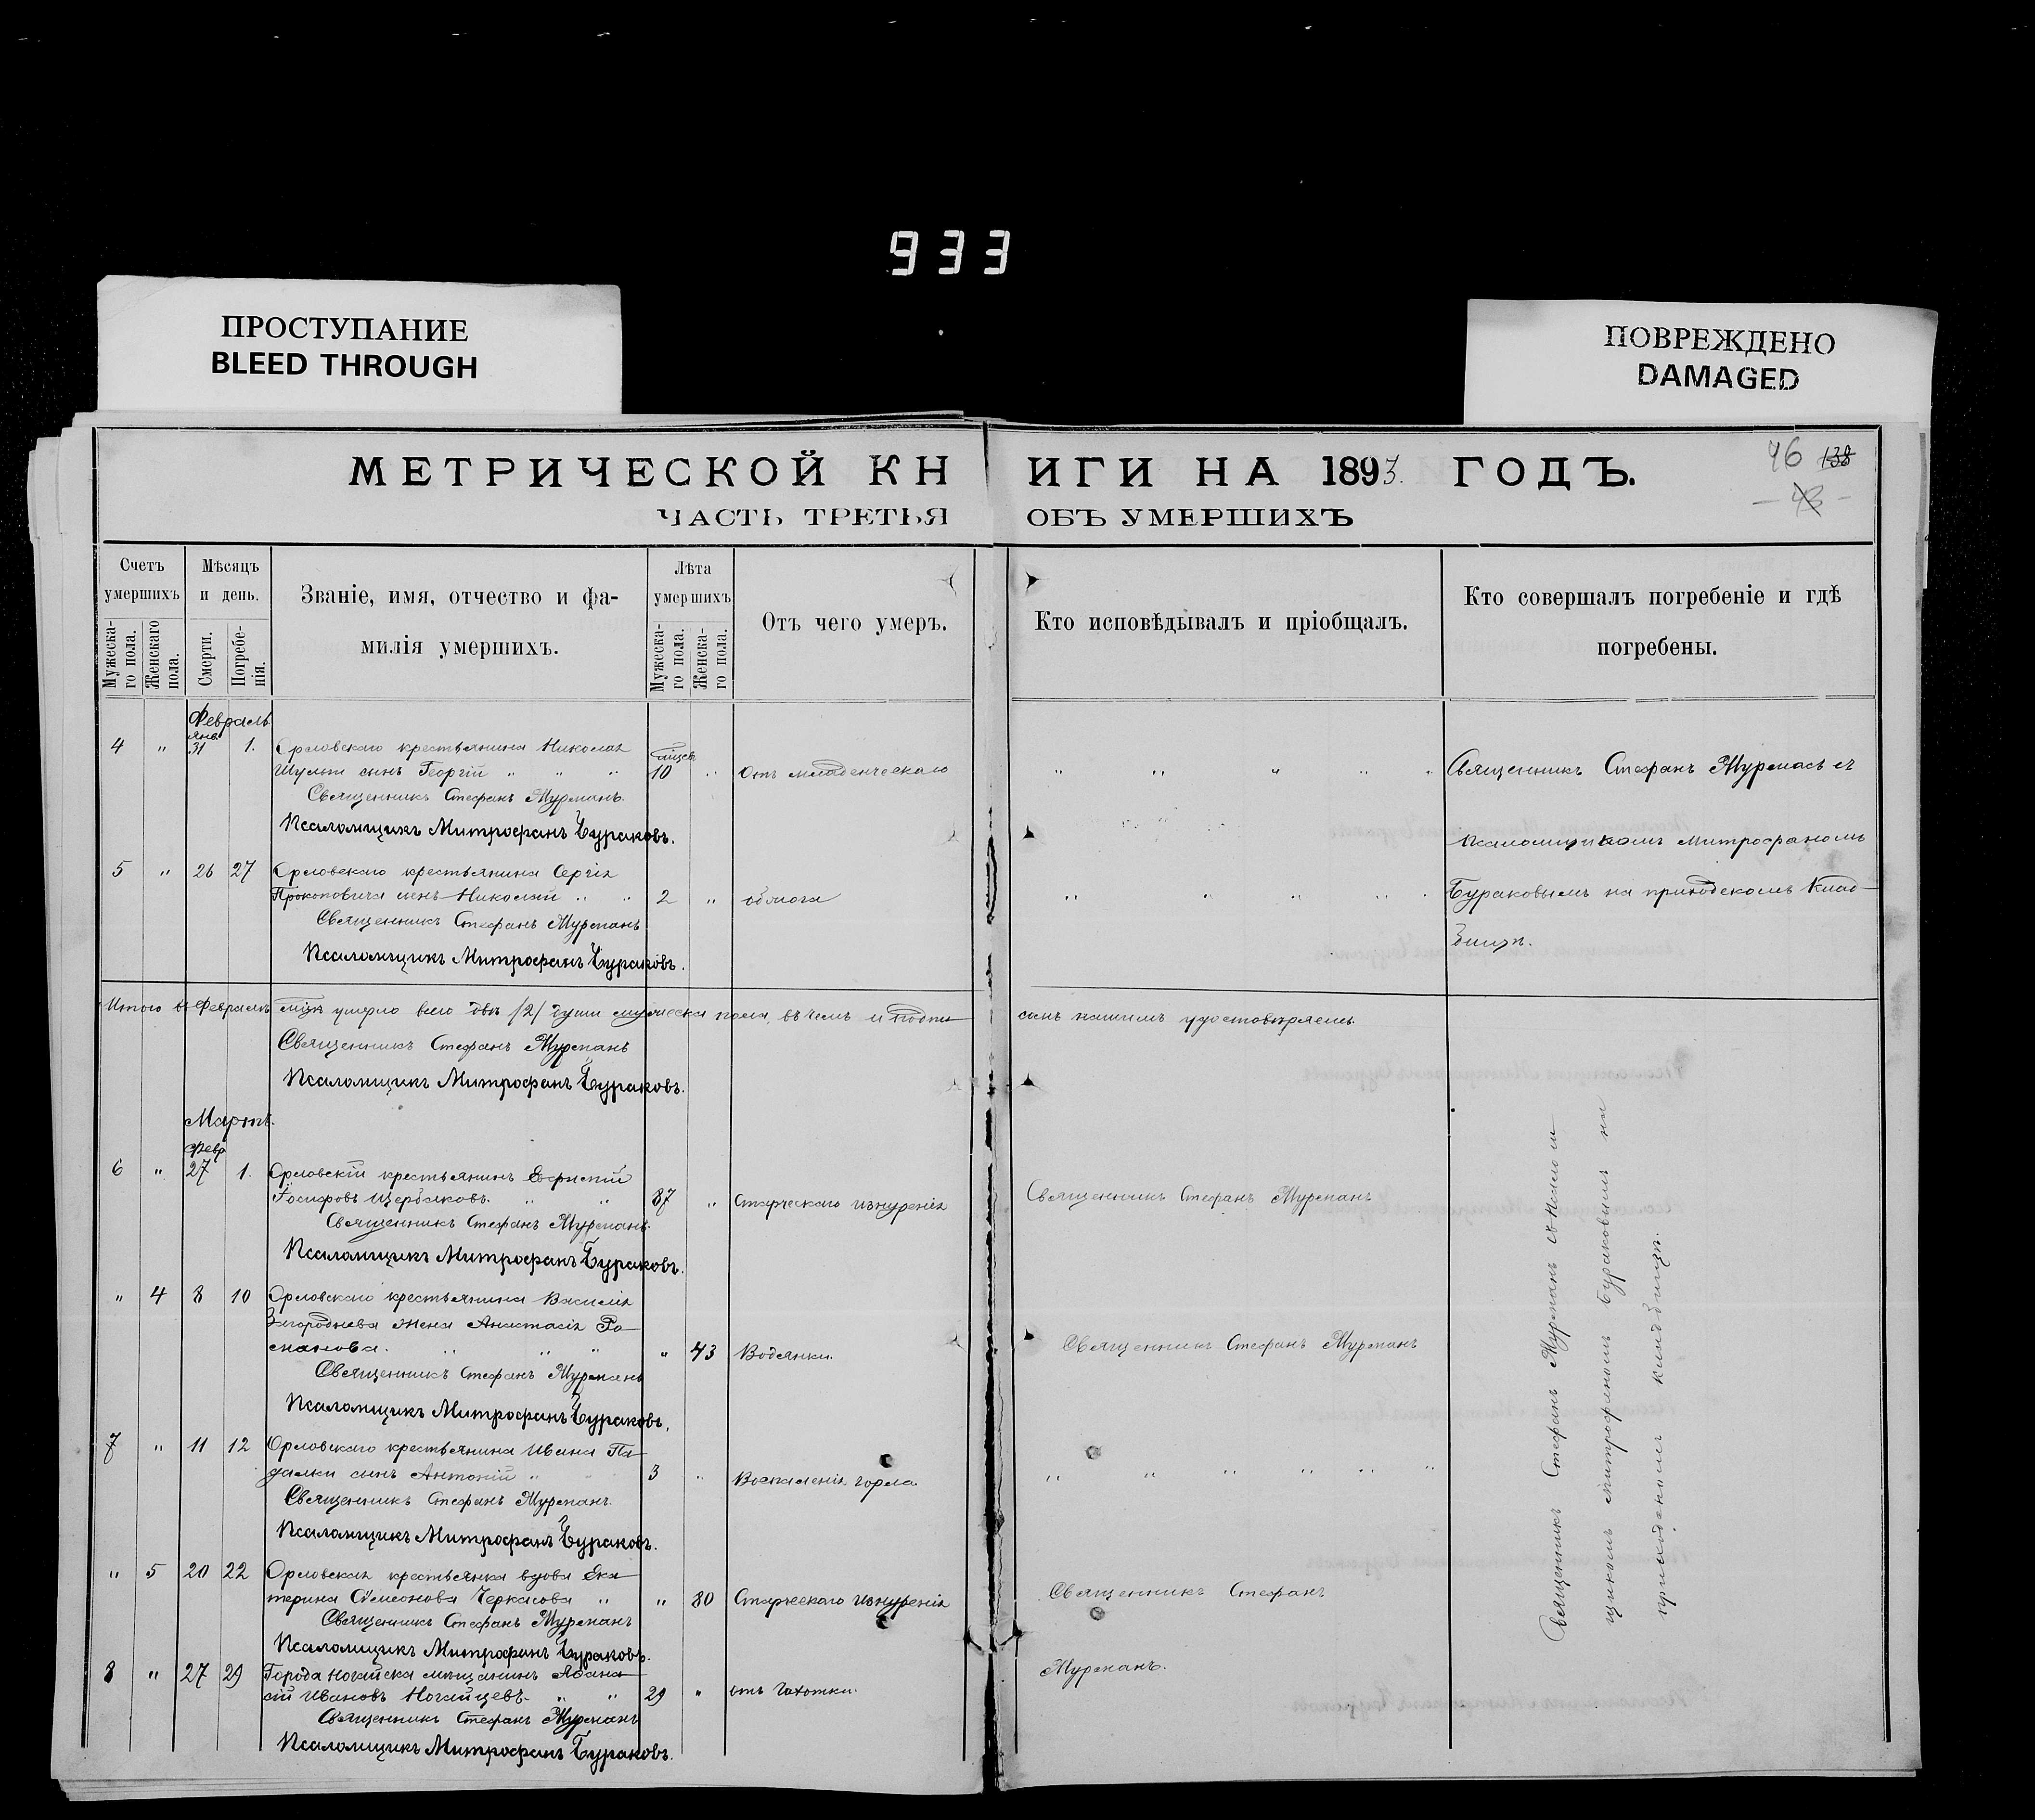 933
ПРОСТУПАНИЕ
BLEED THROUGH
ПОВРЕЖДЕНО
DAMAGED
МЕТРИЧЕСКОЙ КНИГИ НА 1893. ГОДЪ.
46 138
- 43 -
ЧАСТЬ ТРЕТЬЯ ОБЪ УМЕРШИХЪ
Счетъ умершихъ
Мужеска-го пола.
Женскаго пола.
Мѣсяцъ и день.
Смерти.
Погребе-нія.
Званіе, имя, отчество и фа-
милія умершихъ.
Лѣта умершихъ
Мужеска-го пола.
Женска-го пола.
Отъ чего умеръ.
Кто исповѣдывалъ и пріобщалъ.
Кто совершалъ погребеніе и гдѣ
погребены.
Февраль
Янв.
4 " 31 1. Орловскаго крестьянина Николая
сынъ Георгій " " " 10 " отъ младенческаго " " " " "
Священникъ Стефанъ Мурманъ.
Псаломщикъ Митрофанъ Бураковъ.
Священникъ Стефанъ Мурманъ съ
Псаломщикомъ Митрофаномъ
Бураковымъ на приходскомъ клад-
бищѣ.
5 " 26 27 Орловскаго крестьянина Сергія
Прокоповича сынъ Николай " " 2 " " " " "
Священникъ Стефанъ Мурманъ
Псаломщикъ Митрофанъ Бураковъ.
Итого въ Февралѣ мцѣ умерло всего двѣ /2/ души мужеска пола, въ чемъ и подпи-
самъ нашимъ удостовѣряемъ.
Священникъ Стефанъ Мурманъ
Псаломщикъ Митрофанъ Бураковъ.
Мартъ.
Февр
6 " 27 1. Орловскій крестьянинъ
Іосифовъ Щербаковъ. " " 87 " Старческаго изнуренія Священникъ Стефанъ Мурманъ
Священникъ Стефанъ Мурманъ.
Псаломщикъ Митрофанъ Бураковъ.
" 4 8 10 Орловскаго крестьянина Василія
Загороднева жена Анастасія Ро-
манова. " " " " 43 Водянки. Священникъ Стефанъ Мурманъ
Священникъ Стефанъ Мурманъ
Псаломщикъ Митрофанъ Бураковъ.
7 " 11 12 Орловскаго крестьянина Ивана Па-
далки сынъ Антоній " " 3 " Воспаленія горла " " " " " "
Священникъ Стефанъ Мурманъ.
Псаломщикъ Митрофанъ Бураковъ.
" 5 20 22 Орловская крестьянка вдова Ека-
терина Сѵмеонова Черкасова " " 80 Старческаго изнуренія Священникъ Стефанъ
Священникъ Стефанъ Мурманъ
Псаломщикъ Митрофанъ Бураковъ.
Мурманъ.
8 " 27 29 Города Ногайска мѣщанинъ Афана-
сій Ивановъ Ногайцевъ. " " 29 " отъ чахотки.
Священникъ Стефанъ Мурманъ
Псаломщикъ Митрофанъ Бураковъ.
Священникъ Стефанъ Мурманъ съ
щикомъ Митрофаномъ Бураковымъ на
приходскомъ кладбищѣ.